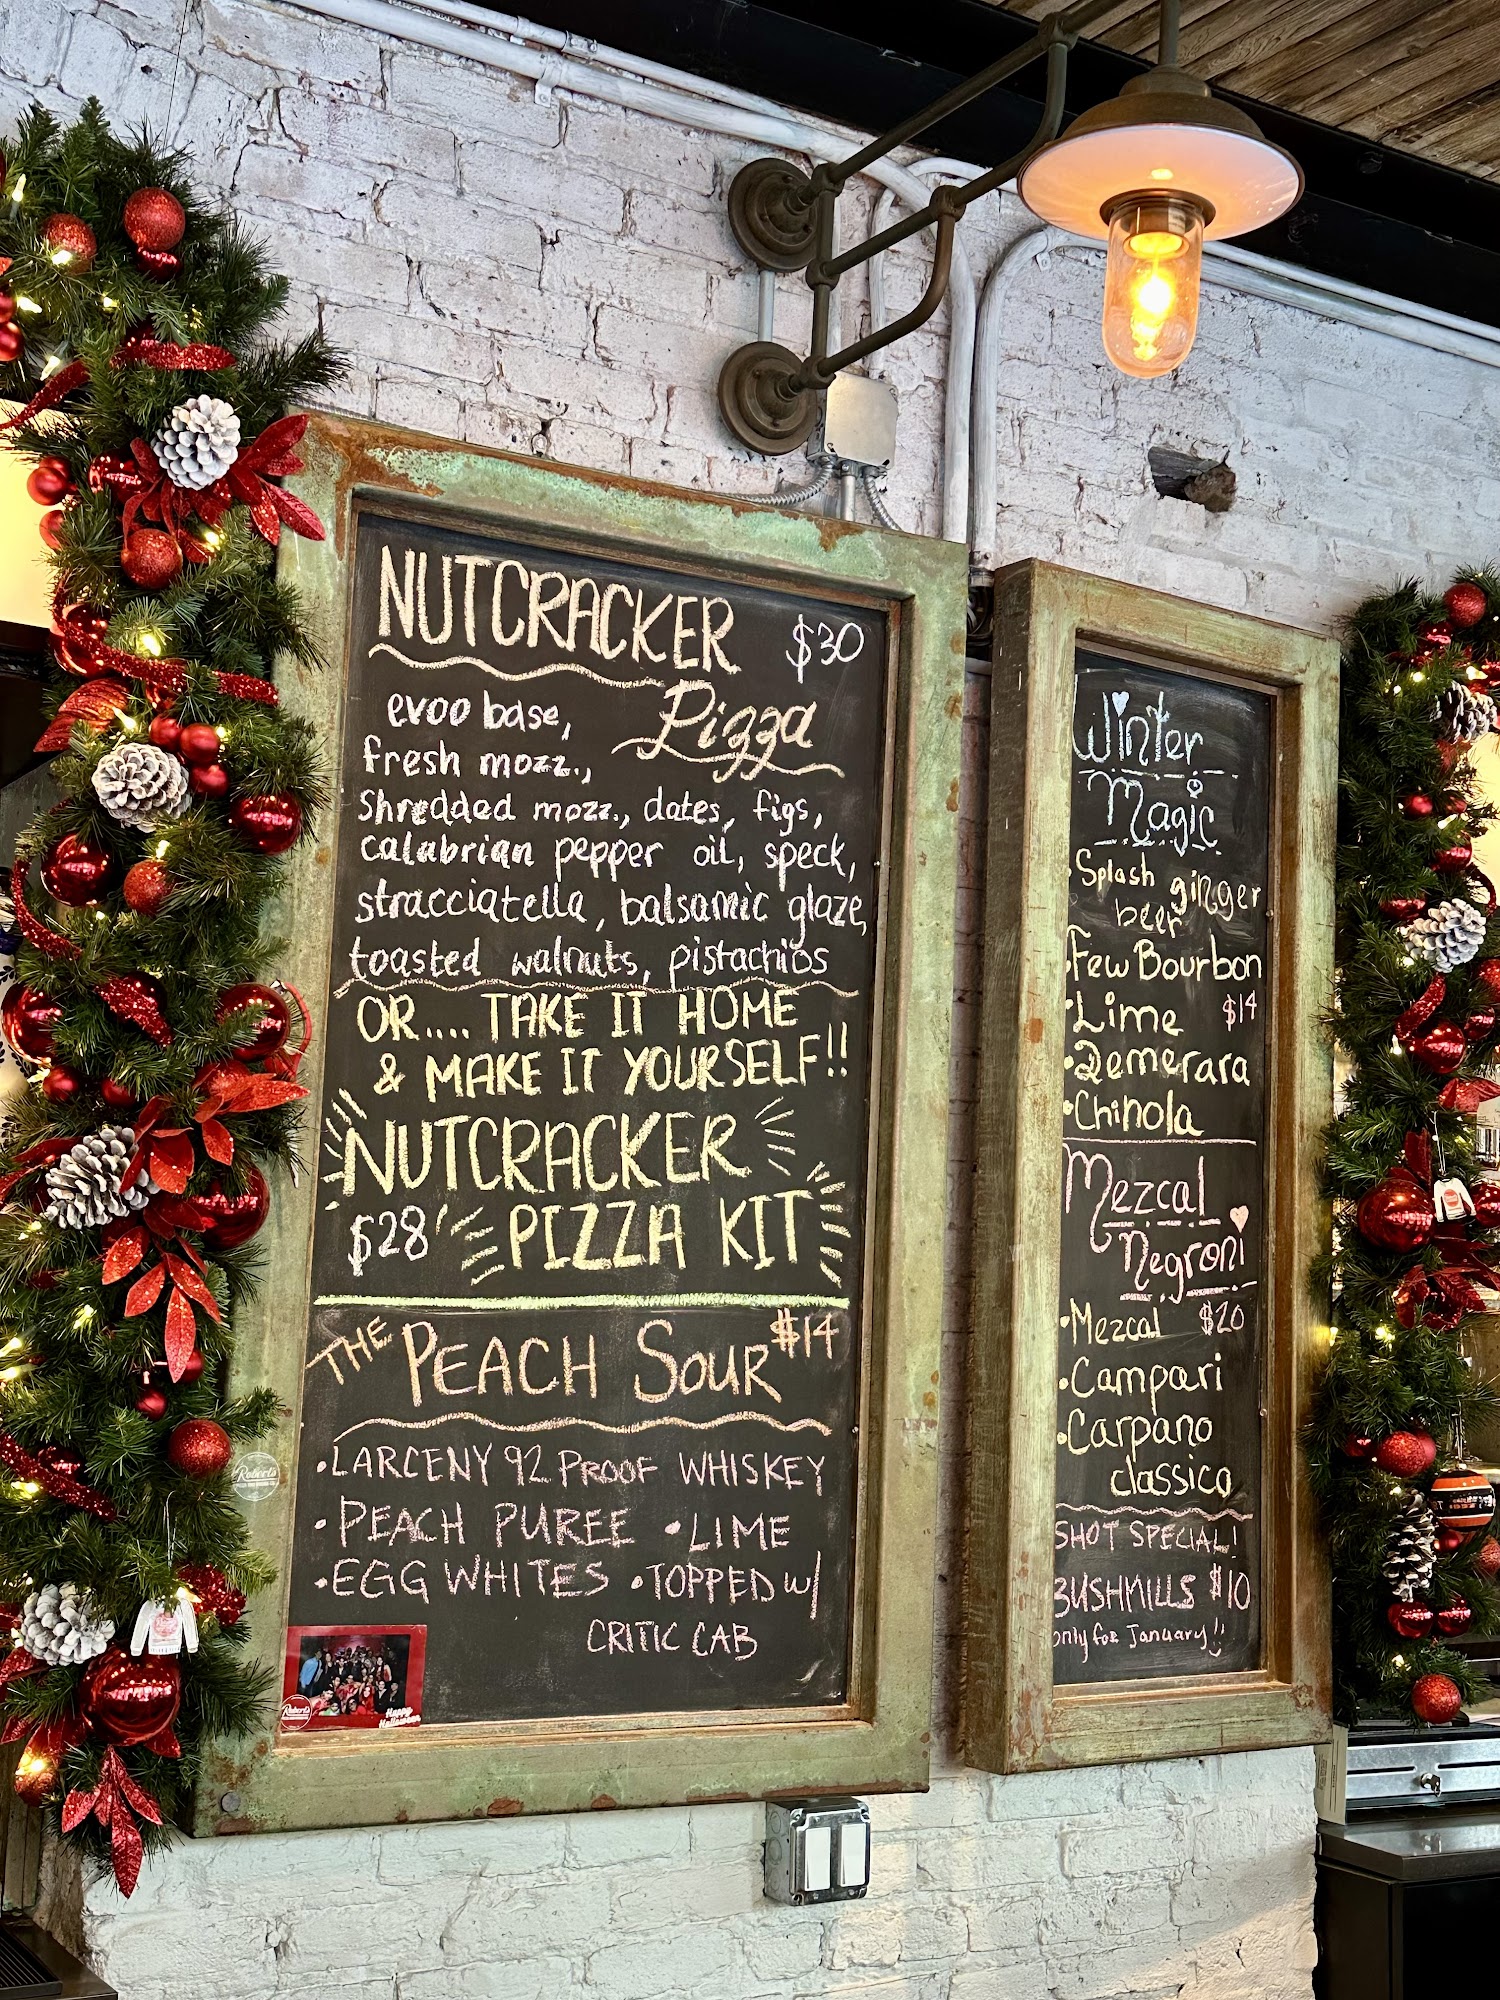 NUTCRACKER $30
Pizza
evoo base,
fresh mozz.,
Shredded mozz., dates, figs,
calabrian pepper oil, speck,
stracciatella, balsamic glaze,
toasted walnuts, pistachios
OR.... TAKE IT HOME
& MAKE IT YOURSELF!!
NUTCRACKER
$28 PIZZA KIT
THE PEACH SOUR $14
• LARCENY 92 PROOF WHISKEY
• PEACH PUREE • LIME
• EGG WHITES • TOPPED W/
CRITIC CAB
Roberts
Roberts
Happy
Halloween
Winter
Magic
• Splash ginger
beer
• Few Bourbon
• Lime $14
• Demerara
• Chinola
Mezcal
Negroni
• Mezcal $20
• Campari
• Carpano
classico
SHOT SPECIAL!
BUSHMILLS $10
only for January!!